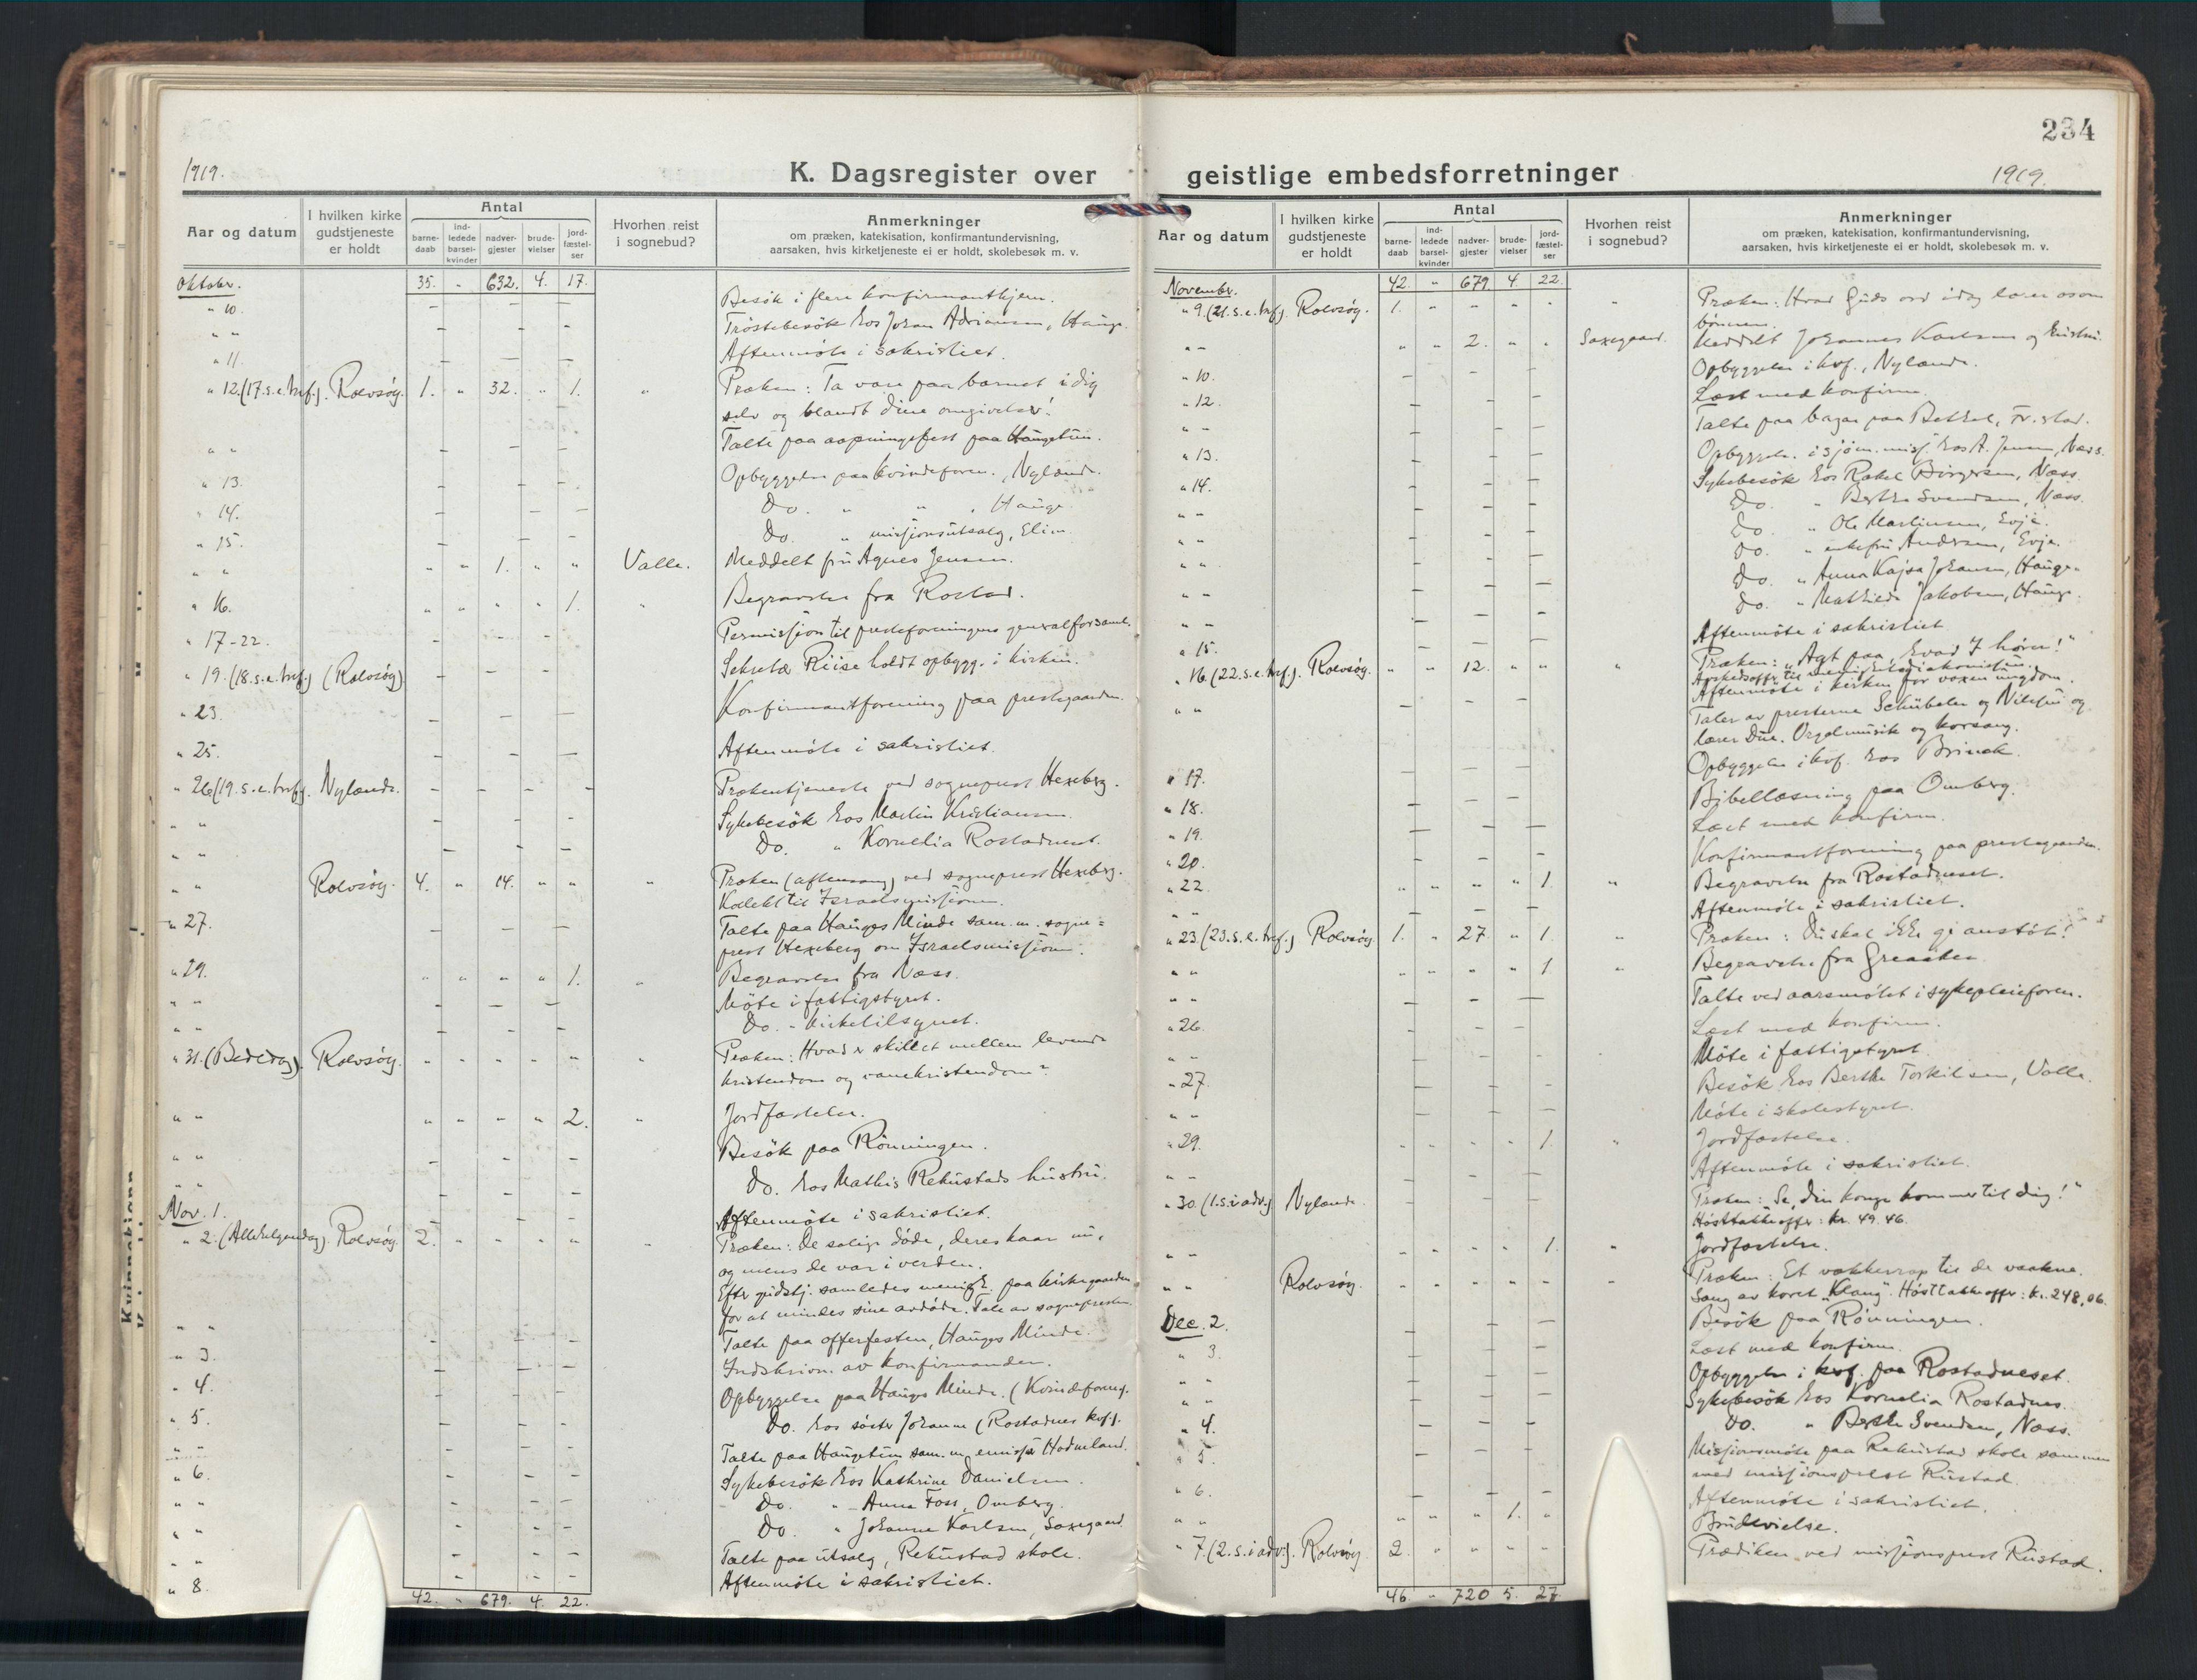 234
1919.
K. Dagsregister over geistlige embedsforretninger
1919.
Aar og datum
I hvilken kirke gudstjeneste er holdt
Antal
barne-daab
ind-ledede barsel-kvinder
nadver-gjester
brude-vielser
jord-fæstel-ser
Hvorhen reist i sognebud?
Anmerkninger
om præken, katekisation, konfirmantundervisning,
aarsaken, hvis kirketjeneste ei er holdt, skolebesøk m. v.
Oktober. 35. " 632. 4. 17.
" 10. — — — Besök i flere konfirmanthjem.
" " — — — Tröstebesök hos Johan Adriansen, Hauge.
" 11. — — — Aftenmöte i sakristiet.
" 12. (17. s. e. tref.). Rolvsöy. 1. " 32. " 1. " Præken: Ta vare paa barnet i dig
selv og blandt dine omgivelser!
" " — — — Talte paa aapningsfest paa Haugetun.
" 13. — — — Opbyggelse paa kvindeforen., Nylænde.
" 14. — — — Do. " " , Hauge
" 15. — — — Do. " misjonsutsalg, Elim.
" " " " 1. " " Valle. Meddelt fru Agnes Jensen.
" 16. " " " " 1. " Begravelse fra Rostad.
" 17-22. — — — Permisjon til presteforeningens generalforsaml.
" 19. (18. s. e. tref.) (Rolvsöy) — — — Sekretær Riise holdt opbygg. i kirken.
" 23. — — — Konfirmantforening paa prestegaarden.
" 25. — — — Aftenmöte i sakristiet.
" 26. (19. s. e. tref.). Nylænde. — — — — Prækentjeneste ved sogneprest Hexeberg.
" " — — — Sykebesök hos Martin Kristiansen.
" " — — — Do. " Kornelia Rostadneset.
" " Rolvsöy. 4. " 14. " " " Præken (aftensang) ved sogneprest Hexeberg.
Kollekt til Israelsmisjonen.
" 27. — — — Talte paa Hauges Minde sam. m. sogne=
prest Hexeberg om Israelsmisjonen.
" 29. " " " " 1. " Begravelse fra Næss.
" " — — — Möte i fattigstyret.
" " — — — Do. " kirketilsynet.
" 31. (Bededag). Rolvsöy. " " " " " " Præken: Hvad er skillet mellem levende
kristendom og vanekristendom?
" " " " " " 2. " Jordfæstelse.
" " — — — Besök paa Rönningen.
" " — — — Do. hos Mathis Rekustads hustru.
Nov. 1. — — — Aftenmöte i sakristiet.
" 2. (Allehelgensdag). Rolvsöy. 2. " " " " " Præken: De salige döde, deres kaar nu,
og mens de var i verden.
Efter gudstj. samledes menigh. paa kirkegaarden
for at mindes sine avdöde. Tale av sognepresten.
" " — — — Talte paa offerfesten, Hauges Minde.
" 3. — — — Indskrivn. av konfirmander.
" 4. — — — Opbyggelse paa Hauges Minde. (Kvindeforng.
" 5. — — — Do. hos söster Johanne (Rostadnes kvf.).
" " — — — Talte paa Haugetun sam. m. emissær Hodneland.
" 6. — — — Sykebesök hos Kathrine Danielsen.
" " — — — Do. " Anna Foss, Omberg.
" " — — — Do. " Johanne Karlsen, Saxegaard.
" " — — — Talte paa utsalg, Rekustad skole.
" 8. — — — Aftenmöte i sakristiet.
42. " 679. 4. 22.
Aar og datum
I hvilken kirke gudstjeneste er holdt
Antal
barne-daab
ind-ledede barsel-kvinder
nadver-gjester
brude-vielser
jord-fæstel-ser
Hvorhen reist i sognebud?
Anmerkninger
om præken, katekisation, konfirmantundervisning,
aarsaken, hvis kirketjeneste ei er holdt, skolebesøk m. v.
November. 42. " 679. 4. 22.
" 9. (21. s. e. tref.). Rolvsöy. 1. " " " " " Præken: Hvad Guds ord idag lærer os om
bönnen.
" " " " 2. " " Saxegaard. Meddelt Johannes Karlsen og hustru.
" 10. — — — Opbyggelse i kvf., Nylænde.
" 12. — — — Læst med konfirm.
" " — — — Talte paa bazar paa Bethel, Fr.stad.
" 13. — — — Opbyggelse i sjöm. misj. hos A. Jensen, Næss.
" 14. — — — Sykebesök hos Rakel Birgersen, Næss.
" " — — — Do. " Berthe Svendsen, Næss.
" " — — — Do. " Ole Martinsen, Evje.
" " — — — Do. " enkefru Andersen, Evje.
" " — — — Do. " Anna Kajsa Johansen, Hauge.
" " — — — Do. " Mathilde Jakobsen, Hauge.
" 15. — — — Aftenmöte i sakristiet.
" 16. (22. s. e. tref.). Rolvsöy. " " 12. " " " Præken: "Agt paa, hvad I hörer!"
til menighetsdiakonissen.
" " — — — Aftenmöte i kirken for voxen ungdom.
Taler av presterne Schübeler og og
lærer Due. Orgelmusik og korsang.
" 17. — — — Opbyggelse i kvf. hos Brinck.
" 18. — — — Bibellæsning paa Omberg.
" 19. — — — Læst med konfirm.
" 20. — — — Konfirmantforening paa prestegaarden.
" 22. " " " " 1. " Begravelse fra Rostadneset.
" " — — — Aftenmöte i sakristiet.
" 23. (23. s. e. tref.) Rolvsöy. 1. " 27. " 1. " Præken: Du skal ikke gi anstöt!
" " " " " " 1. " Begravelse fra Greaaker.
" " — — — Talte ved aarsmötet i sykepleieforen.
" 26. — — — Læst med konfirm.
" " — — — Möte i fattigstyret.
" 27. — — — Besök hos Berthe Torkilsen, Valle.
" " — — — Möte i skolestyret.
" 29. " " " " 1. " Jordfæstelse.
" " — — — Aftenmöte i sakristiet.
" 30. (1. s. i adv.) Nylænde. — — — Præken: Se, din konge kommer til dig!"
Hösttakkeoffer: kr. 49.46.
" " " " " " 1. " Jordfæstelse.
" " Rolvsöy. " " " " " " Præken: Et vækkerrop til de vaakne.
Sang av koret "Klang". Hösttakkeoffer: kr. 248,06.
Dec. 2. — — — Besök paa Rönningen.
" 3. — — — Læst med konfirm.
" " — — — Opbyggelse i kvf. paa Rostadneset.
" " — — — Sykebesök hos Kornelia Rostadnes.
" 4. — — — Do. " Berthe Svendsen, Næss.
" 5. — — — Misjonsmöte paa Rekustad skole sammen
med misjonsprest Rustad.
" 6. — — — Aftenmöte i sakristiet.
" " " " " 1. " Brudevielse.
" 7. (2. s. i adv.). Rolvsöy. 2. " " " " Prædiken ved misjonsprest Rustad.
46. " 720 5. 27.